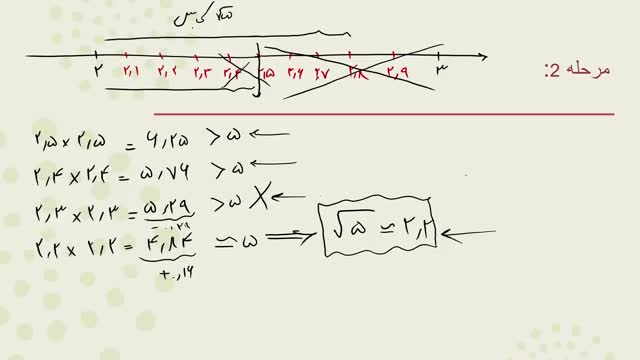 مرحله 2:
۲ ۲٫۱ ۲٫۲ ۲٫۳ ۲٫۴ ۲٫۵ ۲٫۶ ۲٫۷ ۲٫۸ ۲٫۹ ۳
۲٫۵ × ۲٫۵ = ۶٫۲۵ > ۵ ←
۲٫۴ × ۲٫۴ = ۵٫۷۶ > ۵ ←
۲٫۳ × ۲٫۳ = ۵٫۲۹ > ۵ X ←
-۰٫۲۹
۲٫۲ × ۲٫۲ = ۴٫۸۴ ≃ ۵ ⟹ √۵ ≃ ۲٫۲ ←
+۰٫۱۶